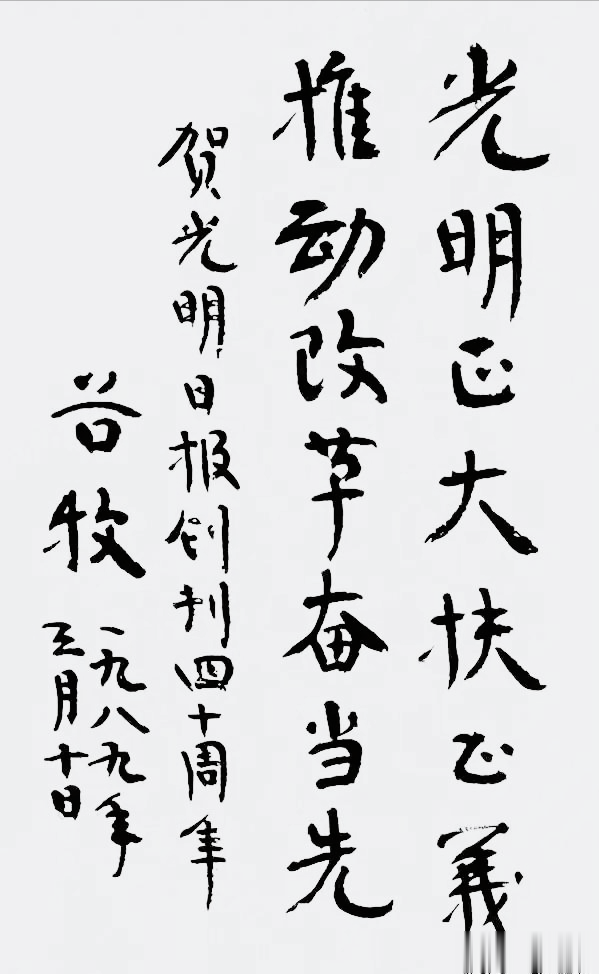 光明正大扶正義
推动改革奋当先
贺光明日报创刊四十周年
谷牧
一九八九年
三月十日